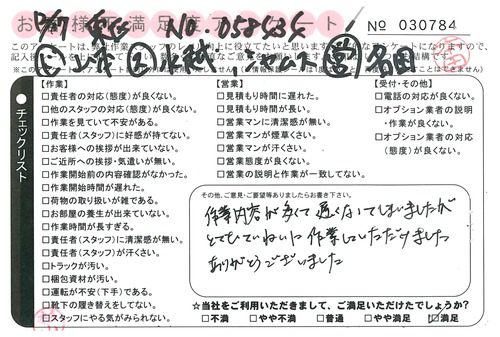 お客様満足度アンケート
No. 058434
No 030784
このアンケートは、弊社作業スタッフの
チェックリスト
【作業】
□責任者の対応(態度)が良くない。
□他のスタッフの対応(態度)が良くない。
□作業を見ていて不安がある。
□責任者(スタッフ)に好感が持てない。
□お客様への挨拶が出来ていない。
□ご近所への挨拶・気遣いが無い。
□作業開始前の内容確認がなかった。
□作業開始時間が遅れた。
□荷物の取り扱いが雑である。
□お部屋の養生が出来ていない。
□作業時間が長すぎる。
□責任者(スタッフ)に清潔感が無い。
□責任者(スタッフ)が汗くさい。
□トラックが汚い。
□梱包資材が汚い。
□運転が不安(下手)である。
□靴下の履き替えをしてない。
□スタッフにやる気がみられない。
【営業】
□見積もり時間に遅れた。
□見積もり時間が長い。
□営業マンに清潔感が無い。
□営業マンが煙草くさい。
□営業マンが汗くさい。
□営業態度が良くない。
□営業の説明と作業が一致してない。
【受付・その他】
□電話の対応が良くない。
□オプション業者の説明
・作業が良くない。
□オプション業者の対応
(態度)が良くない。
その他、ご意見・ご要望等ありましたらお書き下さい。
作業内容が多くて遅くなってしまいましたが
とてもていねいに作業していただけました
ありがとうございました
☆当社をご利用いただきまして、ご満足いただけたでしょうか?
□不満 □やや不満 □普通 □やや満足 ☑満足